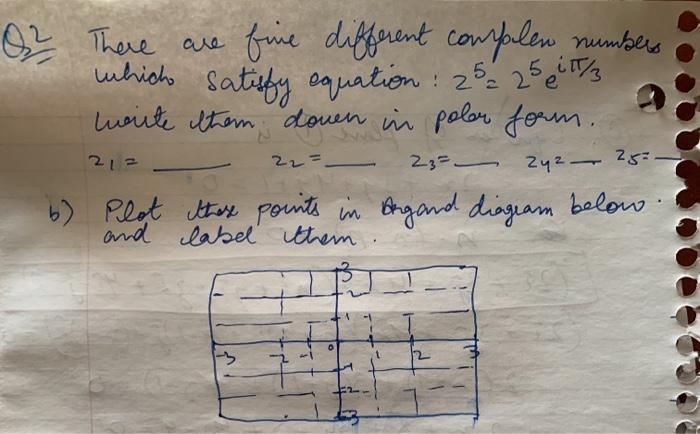 Q2 There are five different complex numbers
which satisfy equation : z^5 = 2^5 e^{iπ/3}
write them down in polar form.
z1 = ____ z2 = ____ z3 = ____ z4 = ____ z5 = ____
b) Plot these points in Argand diagram below.
and label them.
3
2
1
-3 -2 -1 0 1 2 3
-1
-2
-3